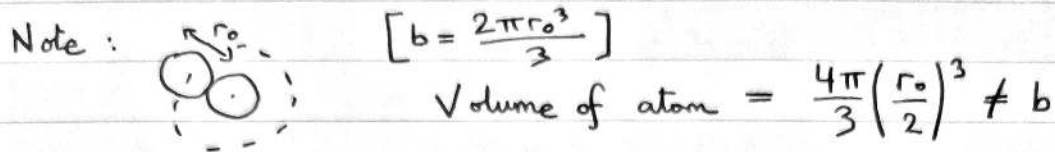 Note : r₀ [b = 2πr₀³/3]
Volume of atom = 4π/3 (r₀/2)³ ≠ b